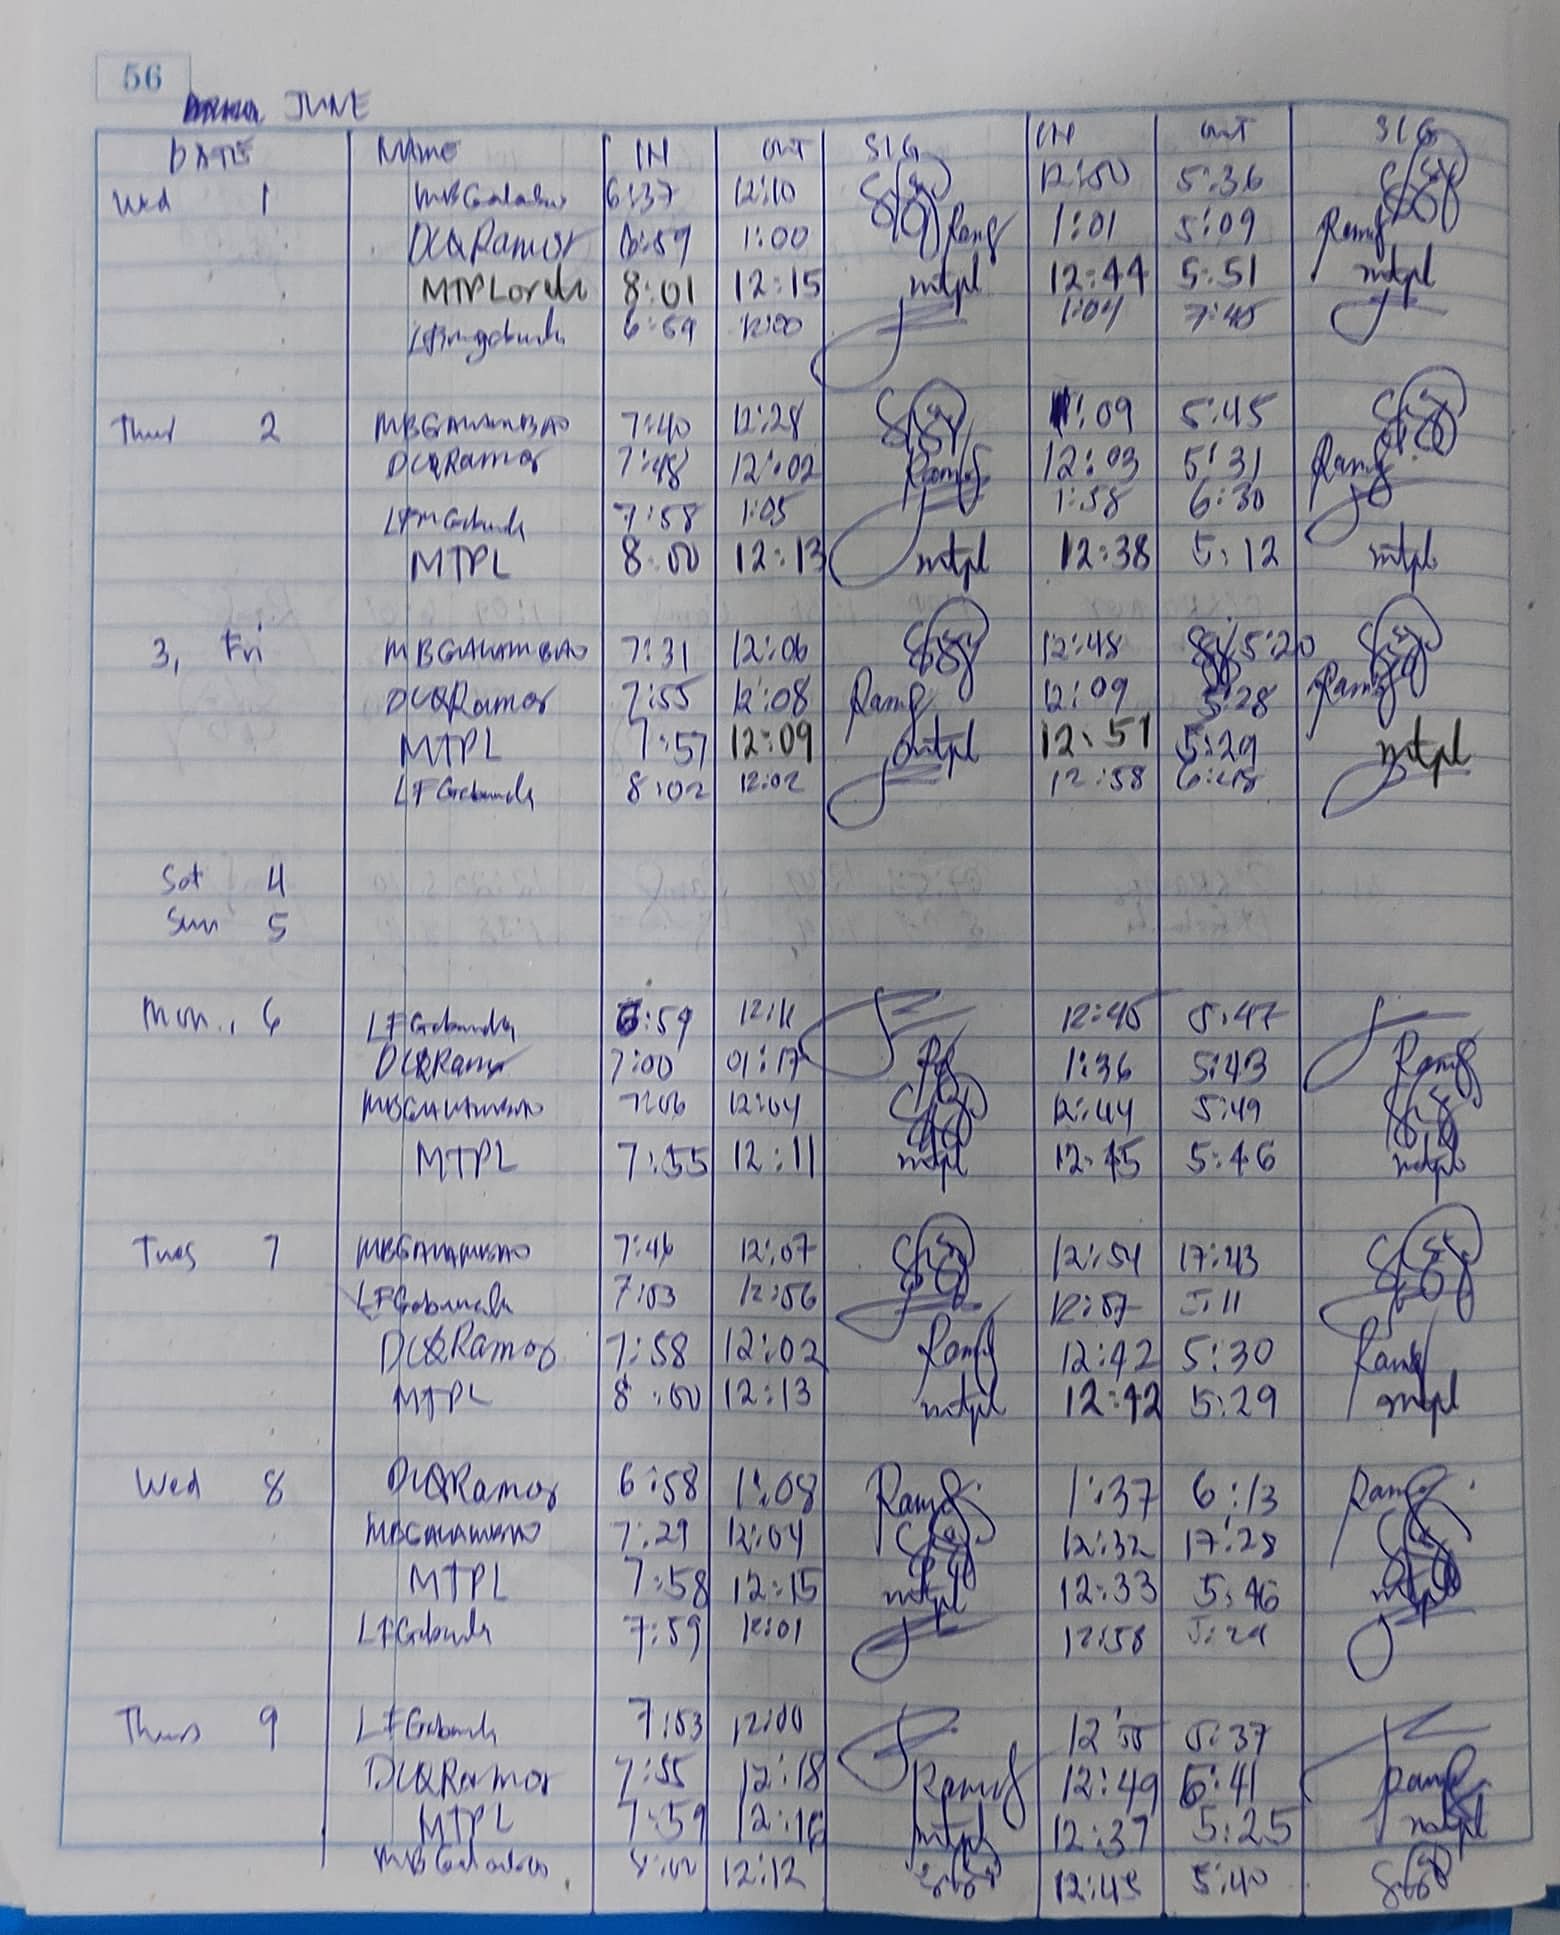 56
JUNE
DATE NAME IN OUT SIG IN OUT SIG
Wed 1 6:37 12:10 12:50 5:36
DCQRamos 6:59 1:00 Ramos 1:01 5:09 Ramos
MTPLorch 8:01 12:15 mtpl 12:44 5:51 mtpl
6:59 12:00 1:04 7:45
Thur 2 MBGALAMBAO 7:40 12:28 1:09 5:45
DCQRamos 7:48 12:02 Ramos 12:03 5:31 Ramos
7:58 1:05 1:58 6:30
MTPL 8:00 12:13 mtpl 12:38 5:12 mtpl
3, Fri MBGALAMBAO 7:31 12:06 12:48 5:20
DCQRamos 7:55 12:08 Ramos 12:09 5:28 Ramos
MTPL 7:57 12:09 mtpl 12:51 5:29 mtpl
8:02 12:02 12:58 6:48
Sat 4
Sun 5
Mon., 6 6:59 12:11 12:45 5:47
DCQRamos 7:00 01:17 1:36 5:43 Ramos
MBGALAMBAO 7:06 12:04 12:44 5:49
MTPL 7:55 12:11 mtpl 12:45 5:46 mtpl
Tues 7 MBGALAMBAO 7:46 12:07 12:54 17:43
7:53 12:56 12:57 5:11
DCQRamos 7:58 12:02 Ramos 12:42 5:30 Ramos
MTPL 8:00 12:13 mtpl 12:42 5:29 mtpl
Wed 8 DCQRamos 6:58 1:08 Ramos 1:37 6:13 Ramos
MBGALAMBAO 7:29 12:04 12:32 17:28
MTPL 7:58 12:15 mtpl 12:33 5:46 mtpl
7:59 12:01 12:58 5:29
Thurs 9 7:53 12:00 12:55 5:37
DCQRamos 7:55 12:18 Ramos 12:49 6:41 Ramos
MTPL 7:59 12:16 mtpl 12:37 5:25 mtpl
8:00 12:12 12:45 5:40